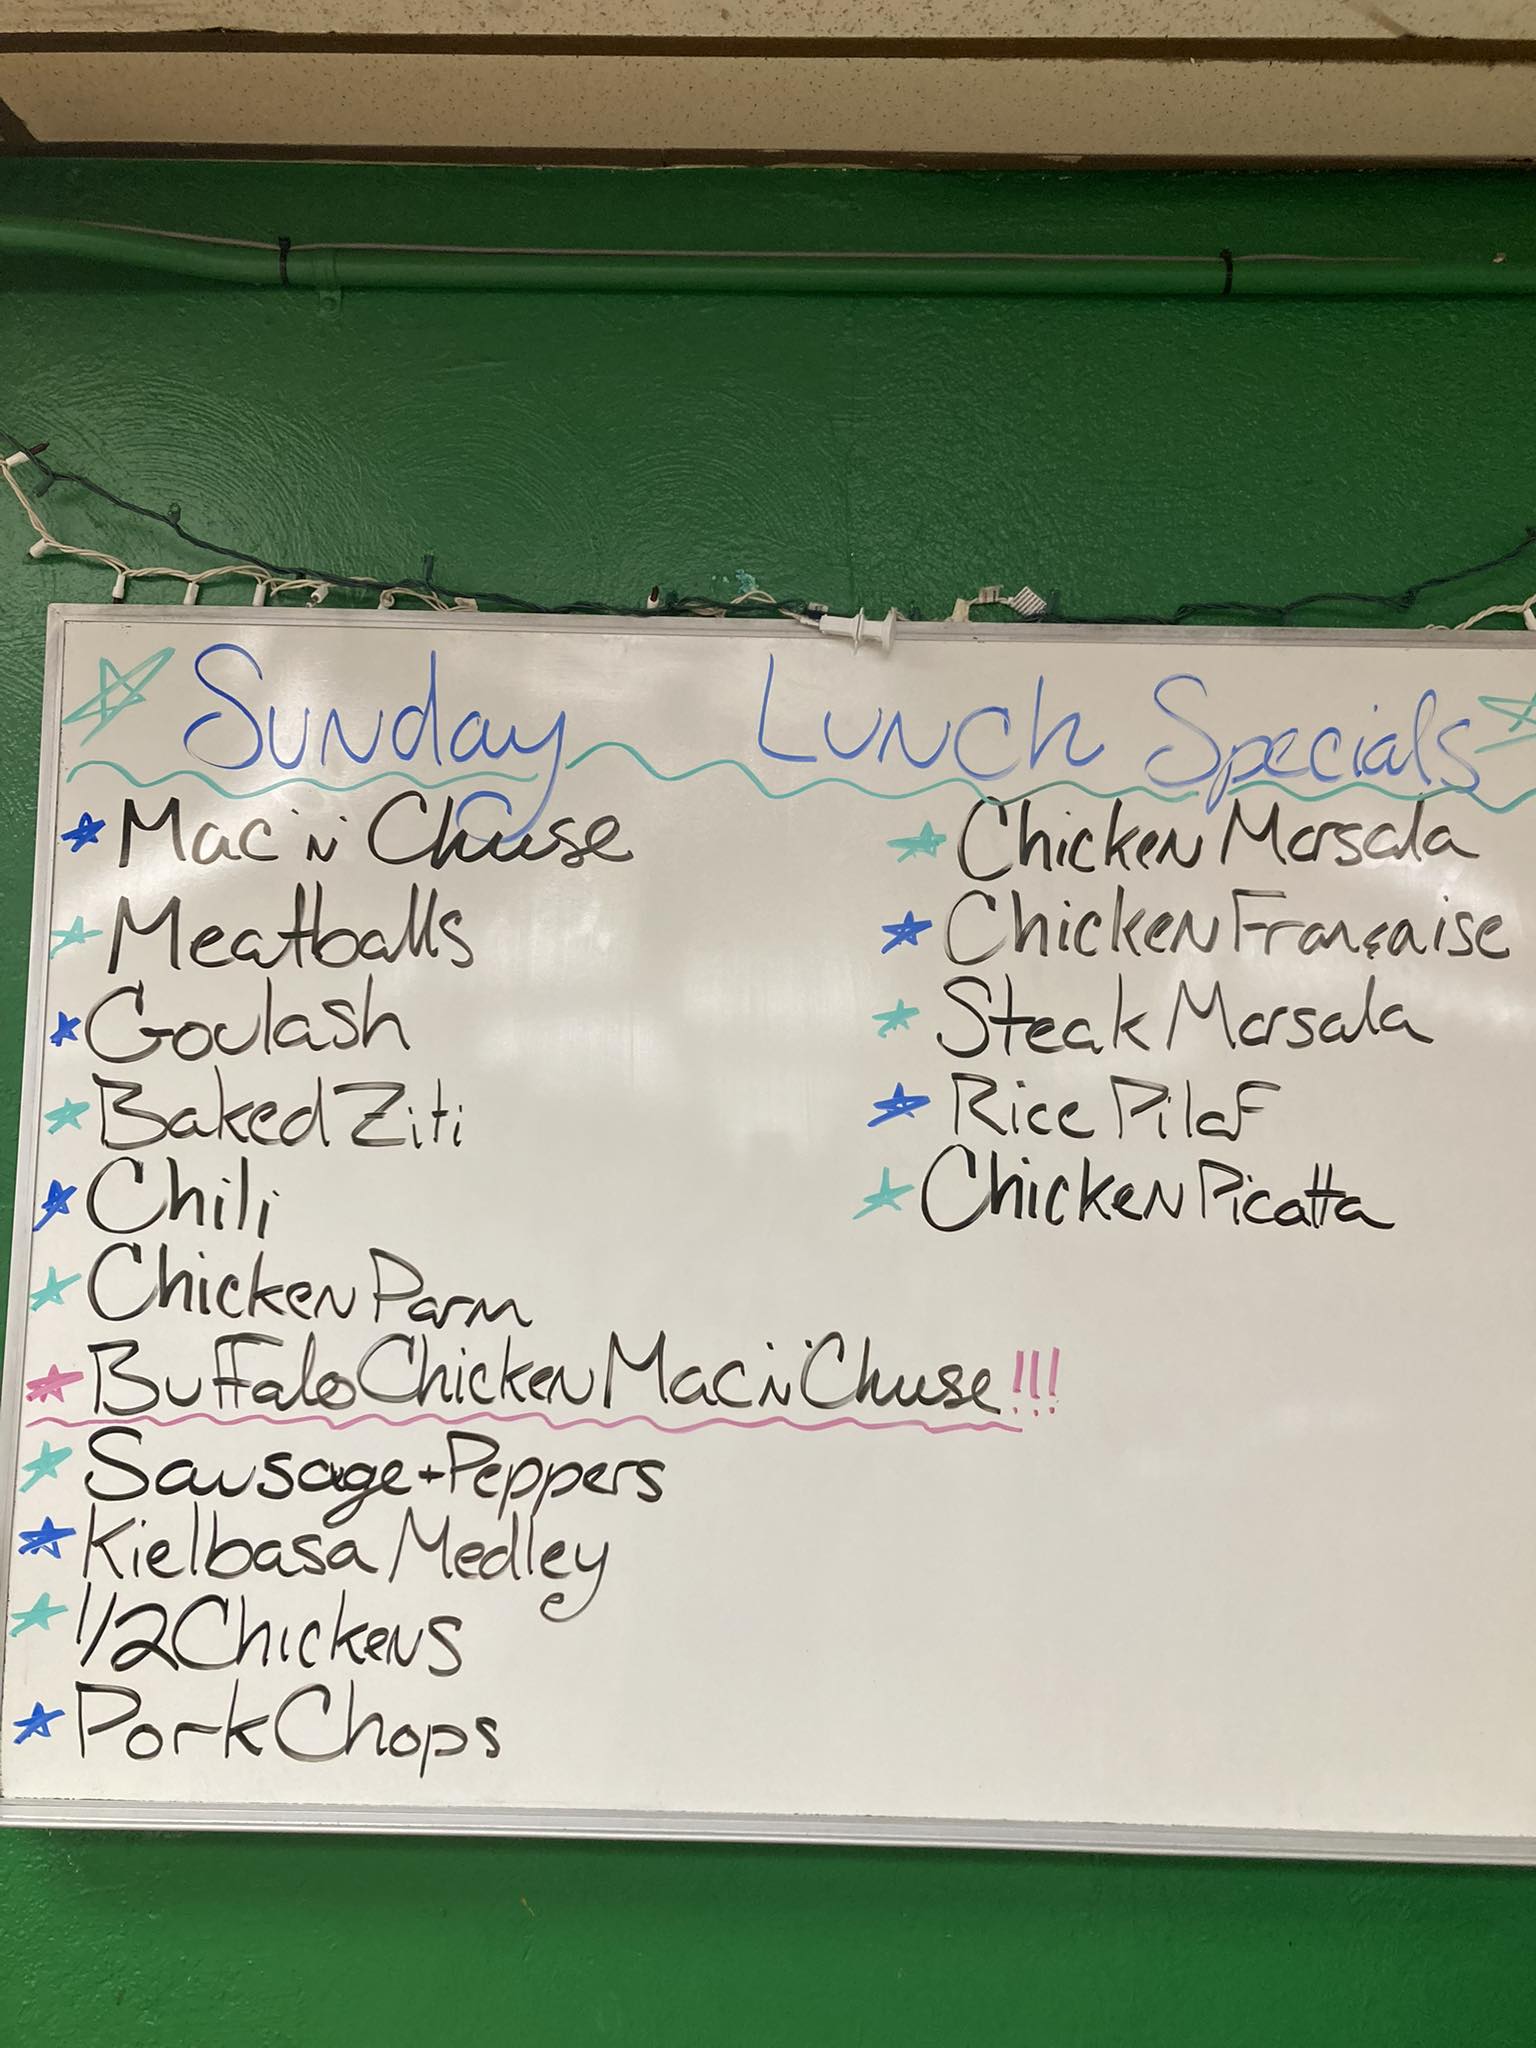 Sunday Lunch Specials
Mac 'n' Cheese
Meatballs
Goulash
Baked Ziti
Chili
Chicken Parm
Buffalo Chicken Mac 'n' Cheese!!!
Sausage + Peppers
Kielbasa Medley
1/2 Chickens
Pork Chops
Chicken Marsala
Chicken Française
Steak Marsala
Rice Pilaf
Chicken Picatta